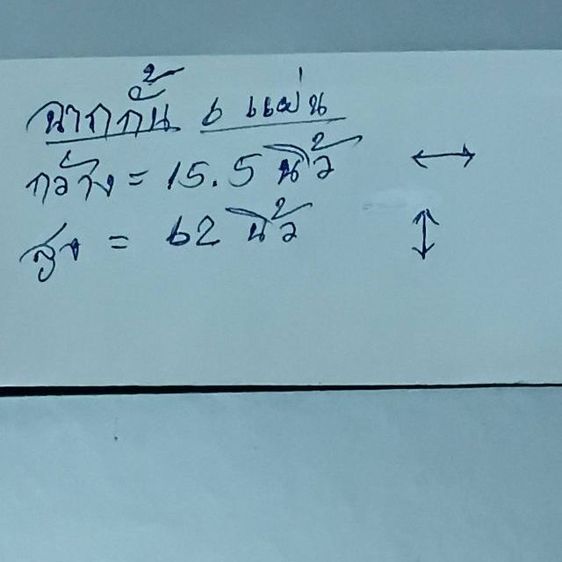 ฉากกั้น 6 แผ่น
กว้าง = 15.5 นิ้ว ↔
สูง = 62 นิ้ว ↕